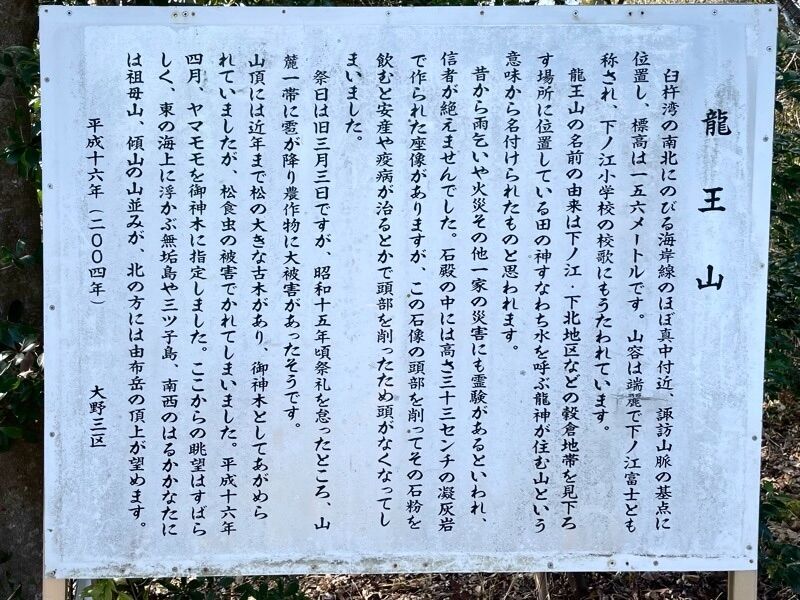 龍王山
臼杵湾の南北にのびる海岸線のほぼ真中付近、諏訪山脈の基点に
位置し、標高は一五六メートルです。山容は端麗で下ノ江富士とも
称され、下ノ江小学校の校歌にもうたわれています。
龍王山の名前の由来は下ノ江・下北地区などの穀倉地帯を見下ろ
す場所に位置している田の神すなわち水を呼ぶ龍神が住む山という
意味から名付けられたものと思われます。
昔から雨乞いや火災その他一家の災害にも霊験があるといわれ、
信者が絶えませんでした。石殿の中には高さ三十三センチの凝灰岩
で作られた座像がありますが、この石像の頭部を削ってその石粉を
飲むと安産や疫病が治るとかで頭部を削ったため頭がなくなってし
まいました。
祭日は旧三月三日ですが、昭和十五年頃祭礼を怠ったところ、山
麓一帯に雹が降り農作物に大被害があったそうです。
山頂には近年まで松の大きな古木があり、御神木としてあがめら
れていましたが、松食虫の被害でかれてしまいました。平成十六年
四月、ヤマモモを御神木に指定しました。ここからの眺望はすばら
しく、東の海上に浮かぶ無垢島や三ツ子島、南西のはるかかなたに
は祖母山、傾山の山並みが、北の方には由布岳の頂上が望めます。
平成十六年(二〇〇四年) 大野三区